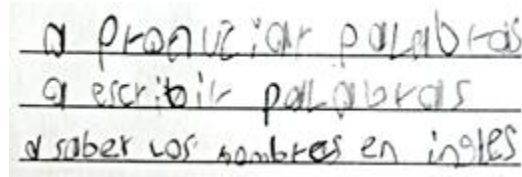 a pronuciar palabras
a escribir palabras
a saber los nombres en ingles